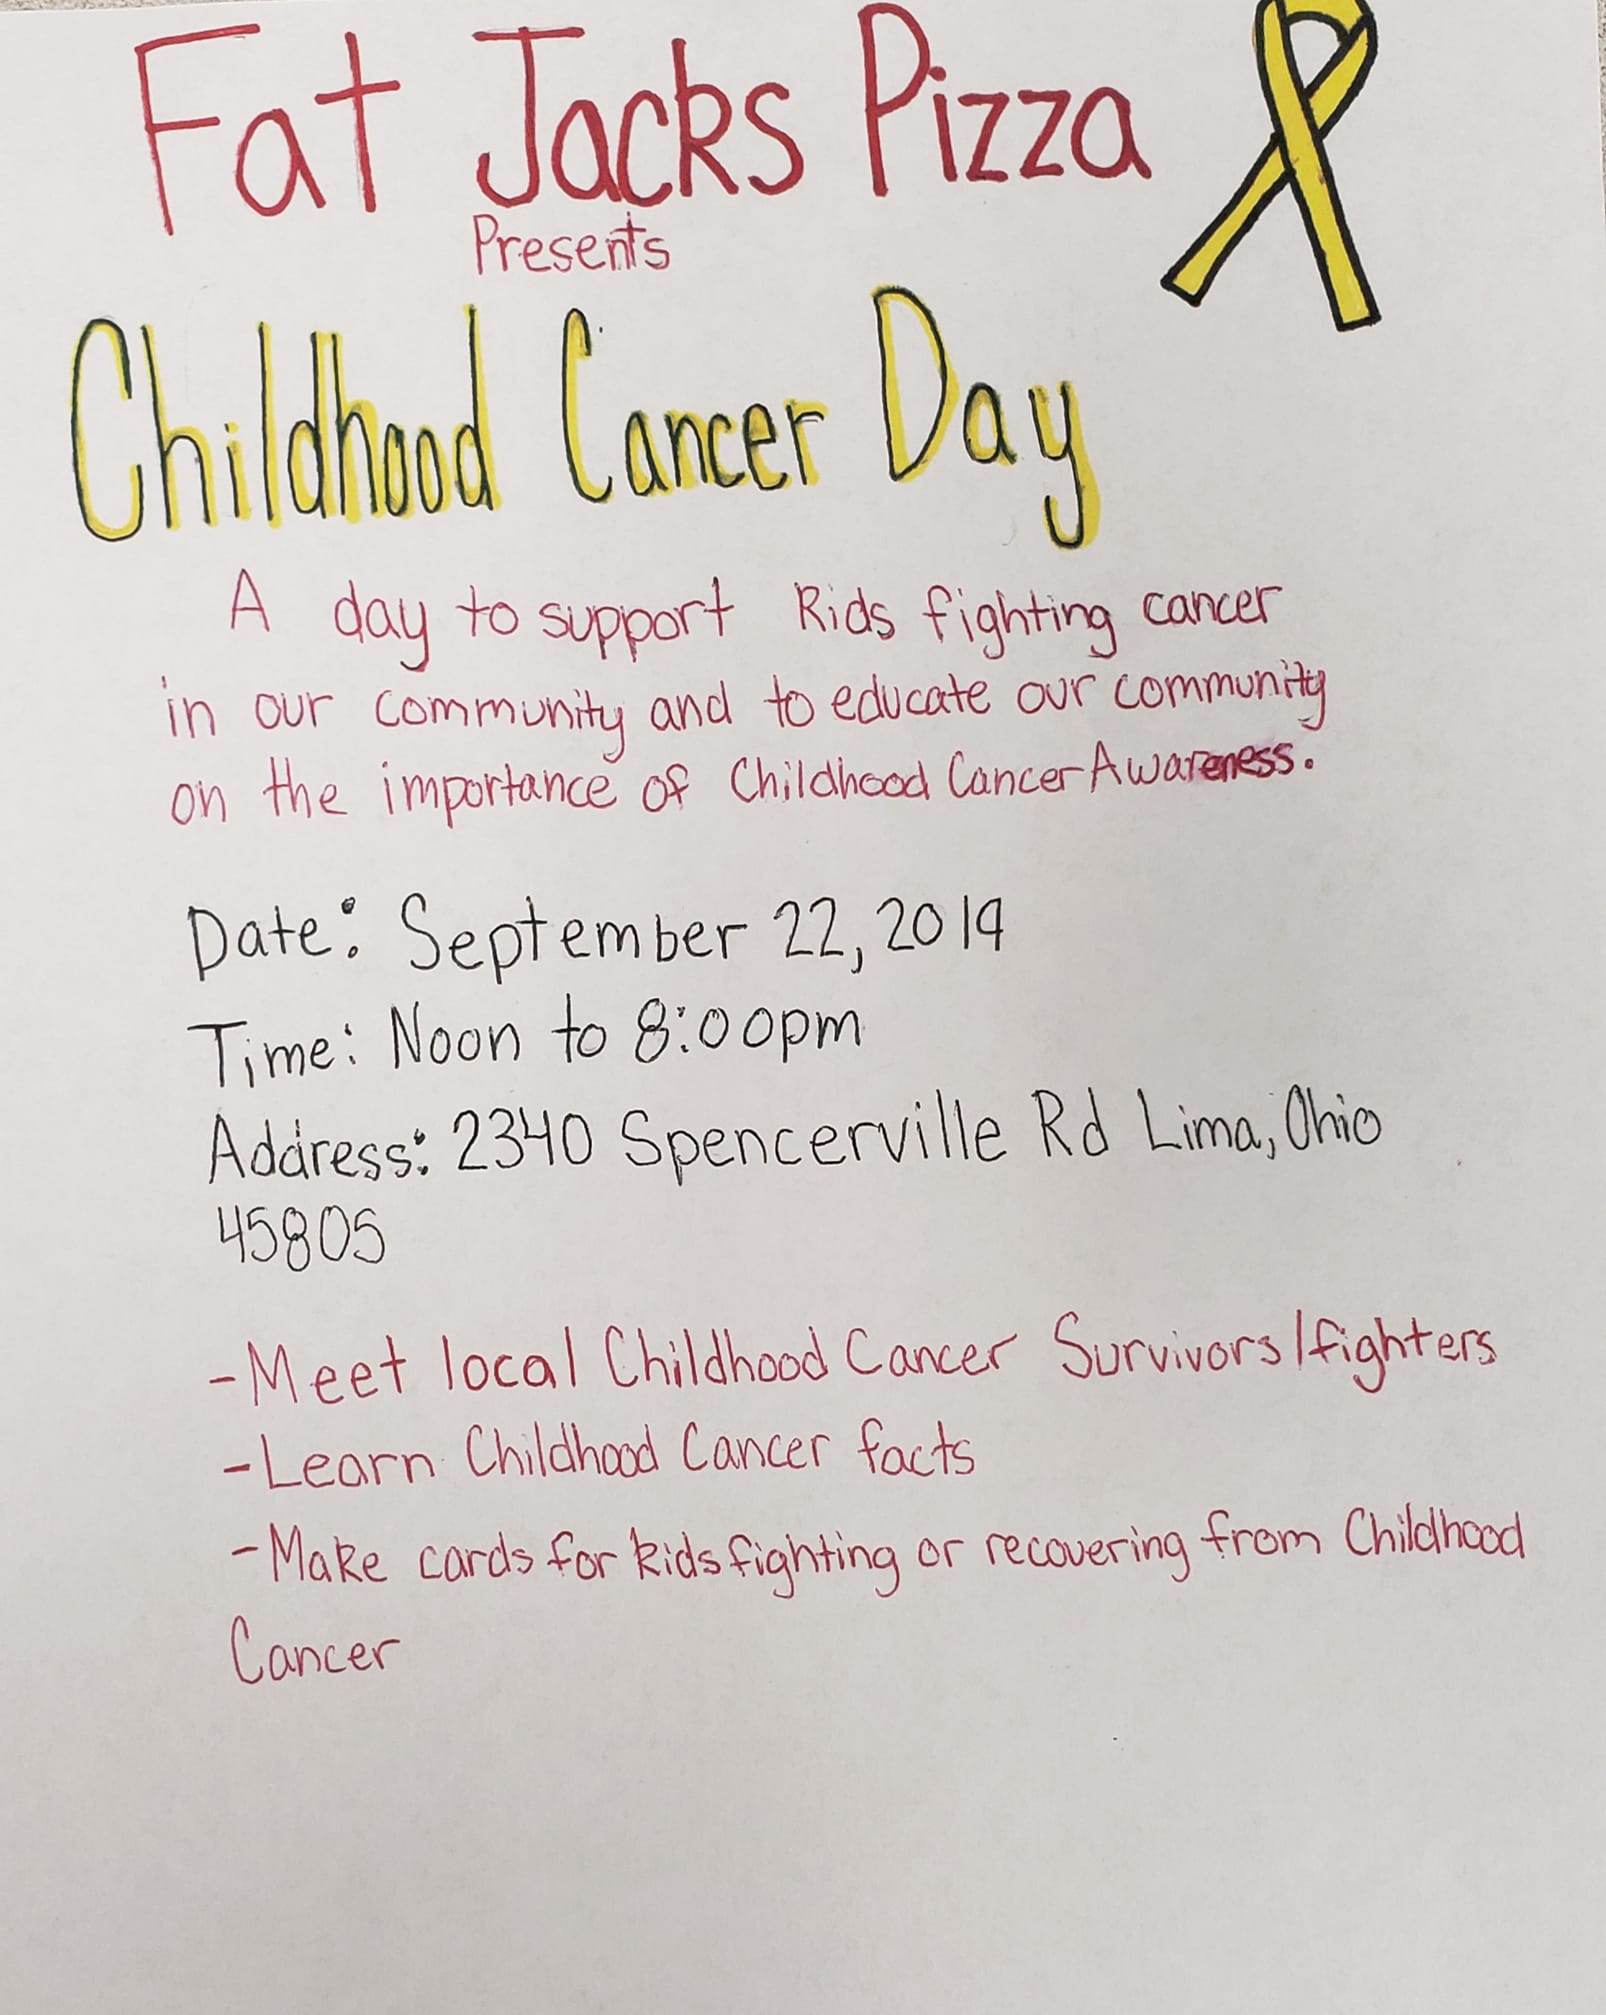 Fat Jacks Pizza
Presents
Childhood Cancer Day
A day to support Kids fighting cancer
in our community and to educate our community
on the importance of Childhood Cancer Awareness.
Date: September 22, 2019
Time: Noon to 8:00pm
Address: 2340 Spencerville Rd Lima, Ohio
45805
-Meet local Childhood Cancer Survivors/fighters
-Learn Childhood Cancer facts
-Make cards for kids fighting or recovering from Childhood
Cancer